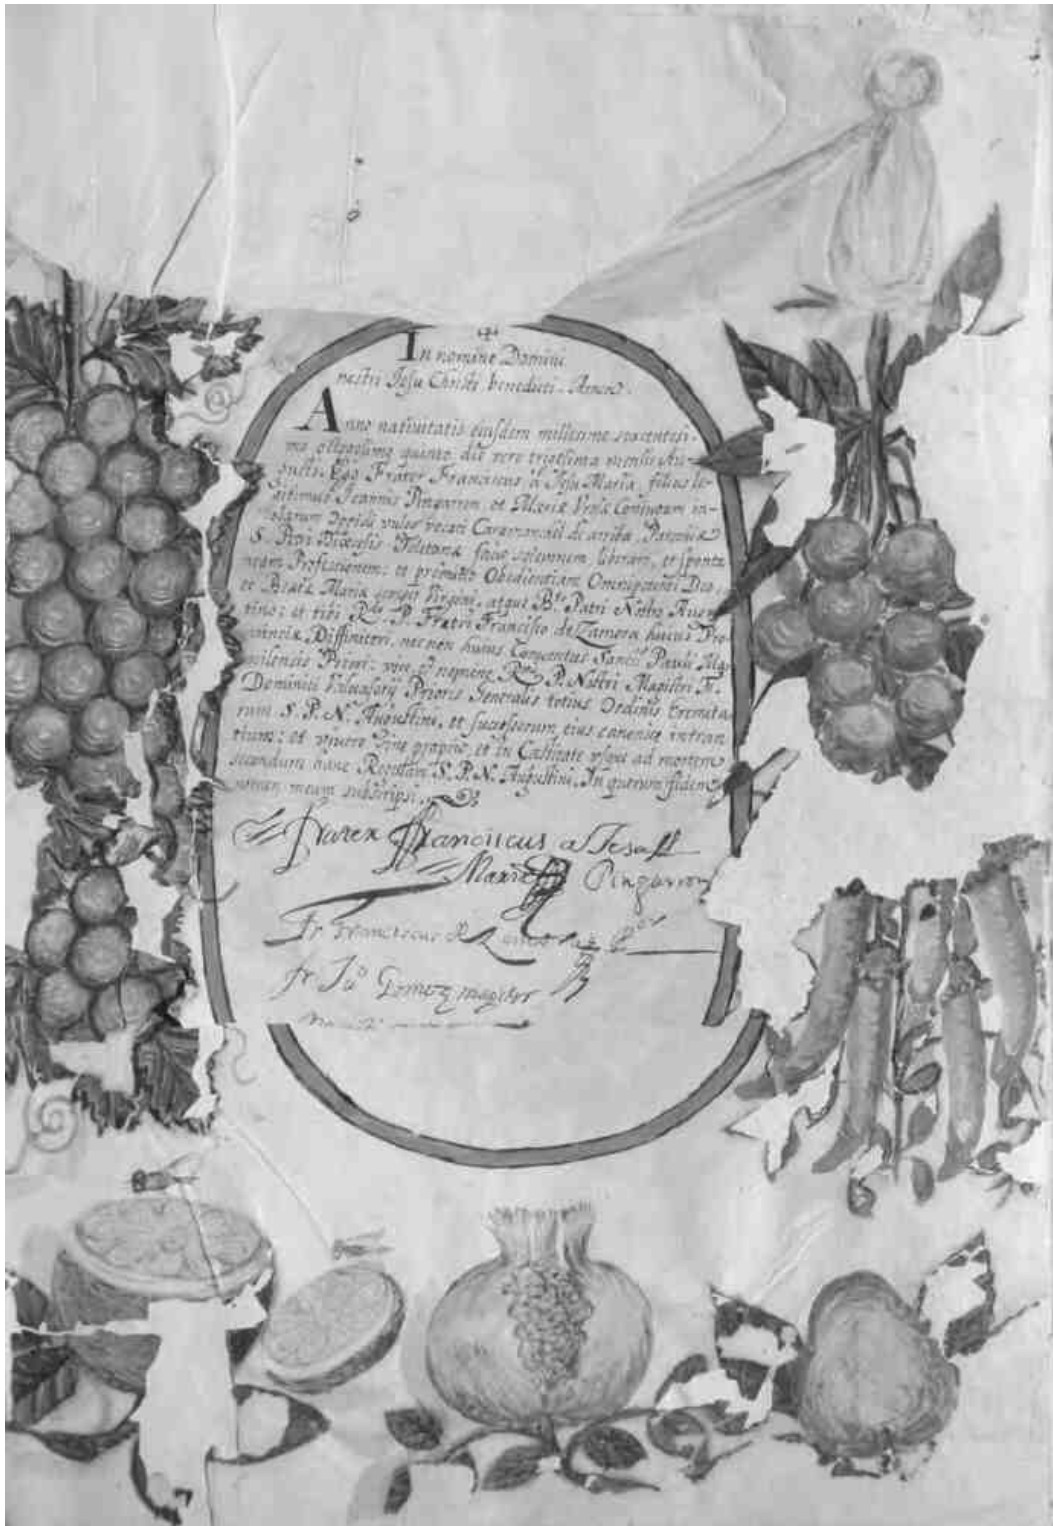 In nomine Domini
nostri Jesu Christi benedicti. Amen.
Anno nativitatis eiusdem millesimo sexcentesi-
mo octogesimo quinto die vero trigesima mensis Au-
gusti. Ego Frater Franciscus à Jesu Maria, filius le-
gitimus Joannis Pingarron, et Mariæ Coniugum in-
colarum Oppidi vulgo vocati Caramanchel de arriba, Parochiæ
S. Petri Diœcesis Toletanæ facio solemnem liberam, et sponta
neam Professionem: et promitto Obedientiam Omnipotenti Deo,
et Beatæ Mariæ semper Virgini, atque Bto Patri Nostro Augus
tino: et tibi Rdo P. Fratri Francisco de Zamora huius Pro-
vinciæ Diffinitori, nec non huius Conventus Sancti Pauli
Priori: vice et nomine P. Nostri Magistri Fr.
Dominici Valvasorij Prioris Generalis totius Ordinis Eremita
rum S. P. N. Augustini, et successorum eius canonice intran
tium: et vivere sine proprio, et in Castitate usque ad mortem
secundum hanc Regulam S. P. N. Augustini. In quorum fidem
nomen meum subscripsi.
Frater Franciscus a Jesu
Maria Pingarron
Fr Franciscus de Zamora
fr Juo Gomez magister